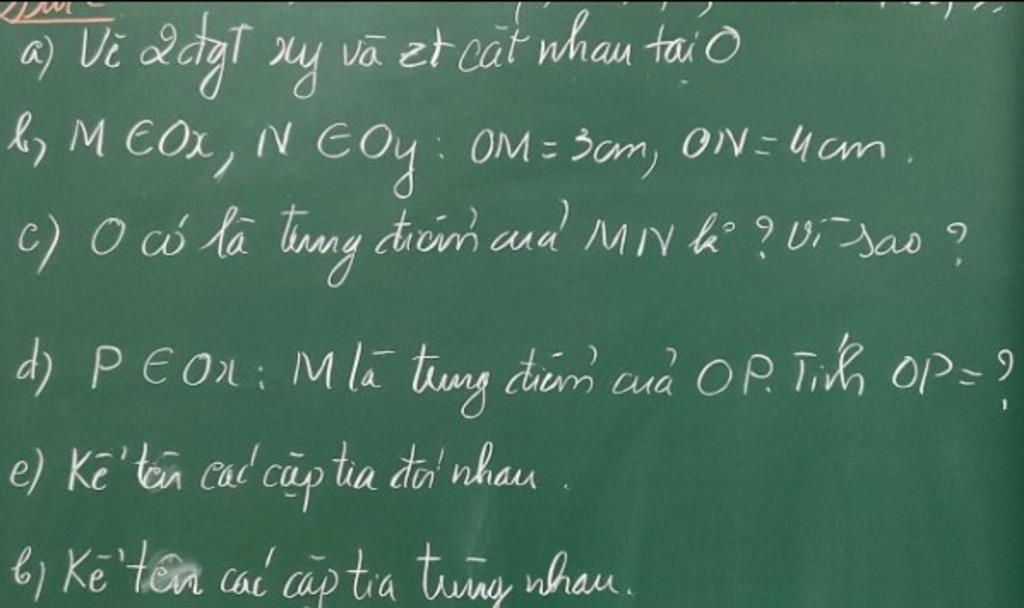 a) Vẽ 2 đgt xy và zt cắt nhau tại O
b, M ∈ Ox, N ∈ Oy : OM = 3cm, ON = 4cm .
c) O có là trung điểm của MN k° ? Vì sao ?
d) P ∈ Ox : M là trung điểm của OP. Tính OP = ?
e) Kể tên các cặp tia đối nhau .
b) Kể tên các cặp tia trùng nhau.